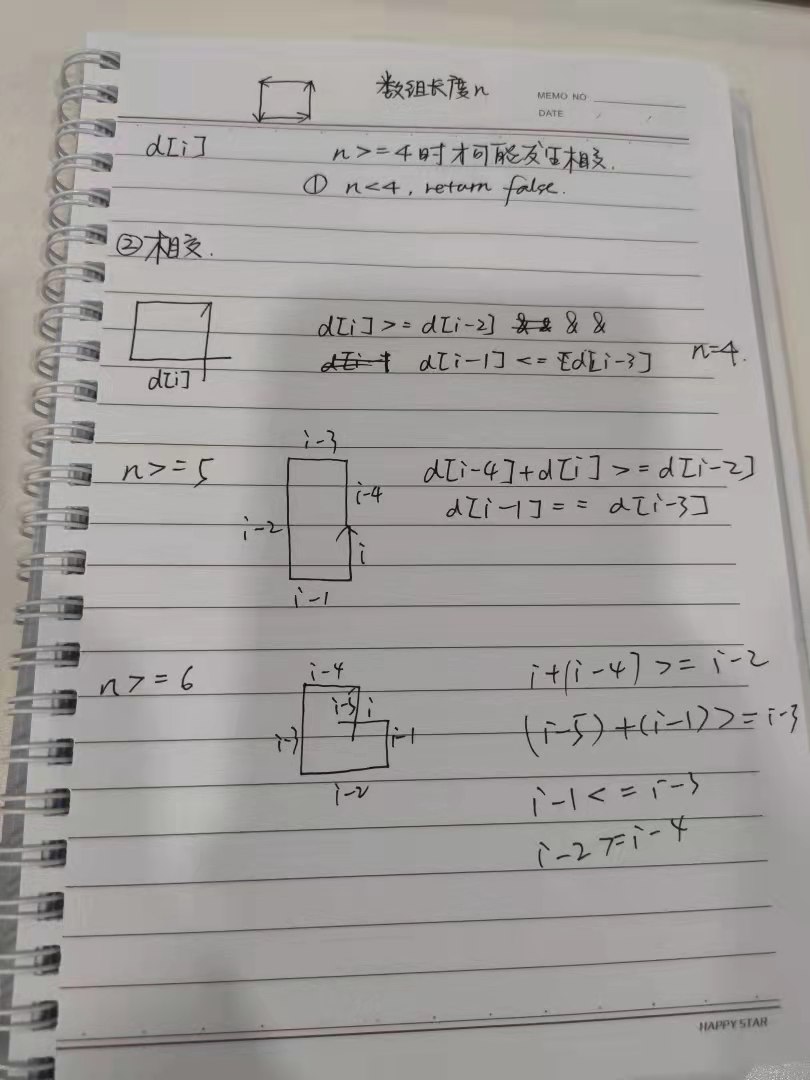 数组长度n
MEMO NO
DATE / /
d[i]
n>=4时才可能发生相交.
① n<4, return false.
②相交.
d[i]>=d[i-2] && &&
d[i-1 d[i-1]<=[d[i-3]
n=4.
d[i]
n>=5
i-3
i-4
i-2
i
i-1
d[i-4]+d[i]>=d[i-2]
d[i-1]== d[i-3]
n>=6
i-4
i-5
i
i-3
i-1
i-2
i+(i-4]>=i-2
(i-5)+(i-1)>=i-3
i-1<=i-3
i-2>=i-4
HAPPY STAR